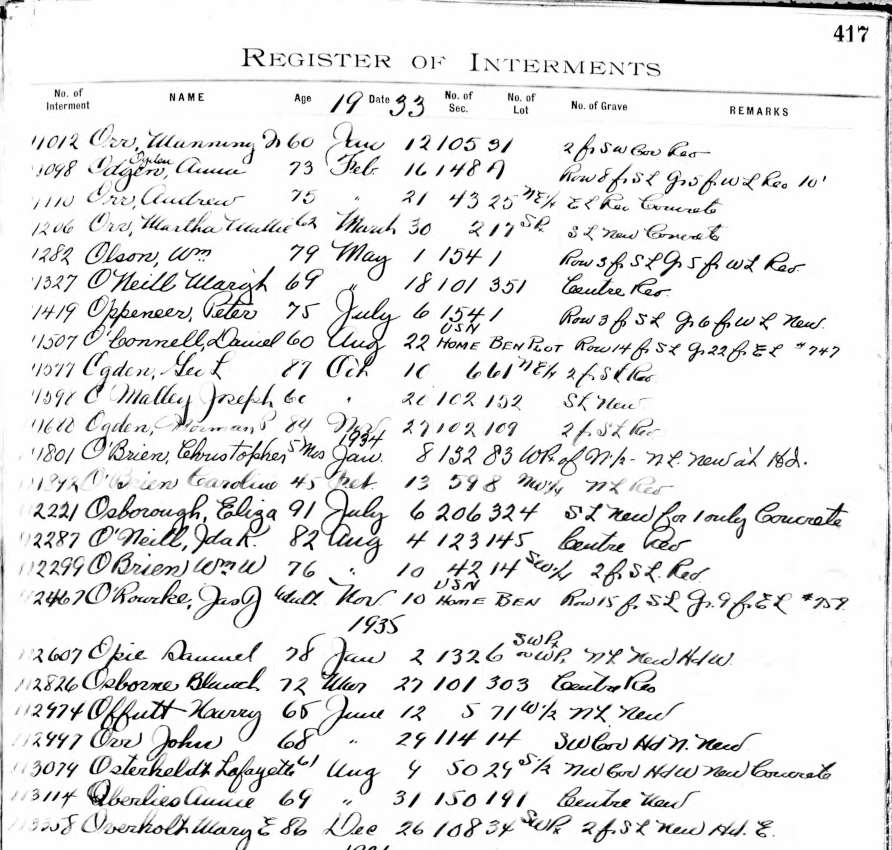 417
REGISTER OF INTERMENTS
No. of Interment NAME Age 19 Date 33 No. of Sec. No. of Lot No. of Grave REMARKS
11012 Orr, Manning 60 Jan 12 105 31 2 fr SW Cor Reo
1098 Odgen, Ogden Anna 73 Feb. 16 148 Row 8 fr S L Gr 5 fr W L Reo 10'
1110 Orr, Andrew 75 " 21 43 25 NE¼ E L Reo Concrete
1206 Orr, Martha Mattie 62 March 30 2 17 SP. S L New Concrete
1282 Olson, Wm 79 May 1 154 1 Row 3 fr S L Gr 5 fr W L Reo.
1327 O'Neill 69 " 18 101 351 Centre Reo.
1419 Peter 75 July 6 154 1 Row 3 fr S L Gr 6 fr W L New.
11507 O'Connell, Daniel 60 Aug 22 USN HOME BEN PLOT Row 14 fr S L Gr 22 fr E L #747
11577 Ogden, Geo L 87 Oct 10 6 61 NE¼ 2 fr S L Reo
O'Malley Joseph " 102 152 S L New
Ogden, Norman P 84 Nov 27 102 109 2 fr S L Reo
1934
11801 O'Brien, Christopher 5 Mos Jan. 8 132 83 WPt of N½ - N L. New at Hd.
O'Brien Caroline 45 Feb. 13 59 8 NW¼ N L Reo
12221 Osborough, Eliza 91 July 6 206 324 S L New for 1 only Concrete
12287 O'Neill, Ida K. 82 Aug 4 123 145 Centre Reo
12299 O'Brien Wm W 76 " 10 42 14 SW¼ 2 fr S L Reo.
12467 O'Rourke, Jas J Adult Nov. 10 USN HOME BEN Row 15 fr S L Gr. 9 fr E L #759.
1935
12607 Opie Samuel 78 Jan 2 132 6 SWPt N L New Hd W.
112826 Osborne Blanch 72 Mar 27 101 303 Centre Reo
112974 Offutt Harry 65 June 12 5 71 W½ N L New
112997 Orr John 68 " 29 114 14 SW Cor Hd N. New
113079 Osterheldt Lafayette 61 Aug 9 50 29 S½ NW Cor Hd W New Concrete
113114 Oberlies Annie 69 " 31 150 191 Centre New
113358 Overholt Mary E 86 Dec 26 108 34 SWPt 2 fr S L New Hd. E.